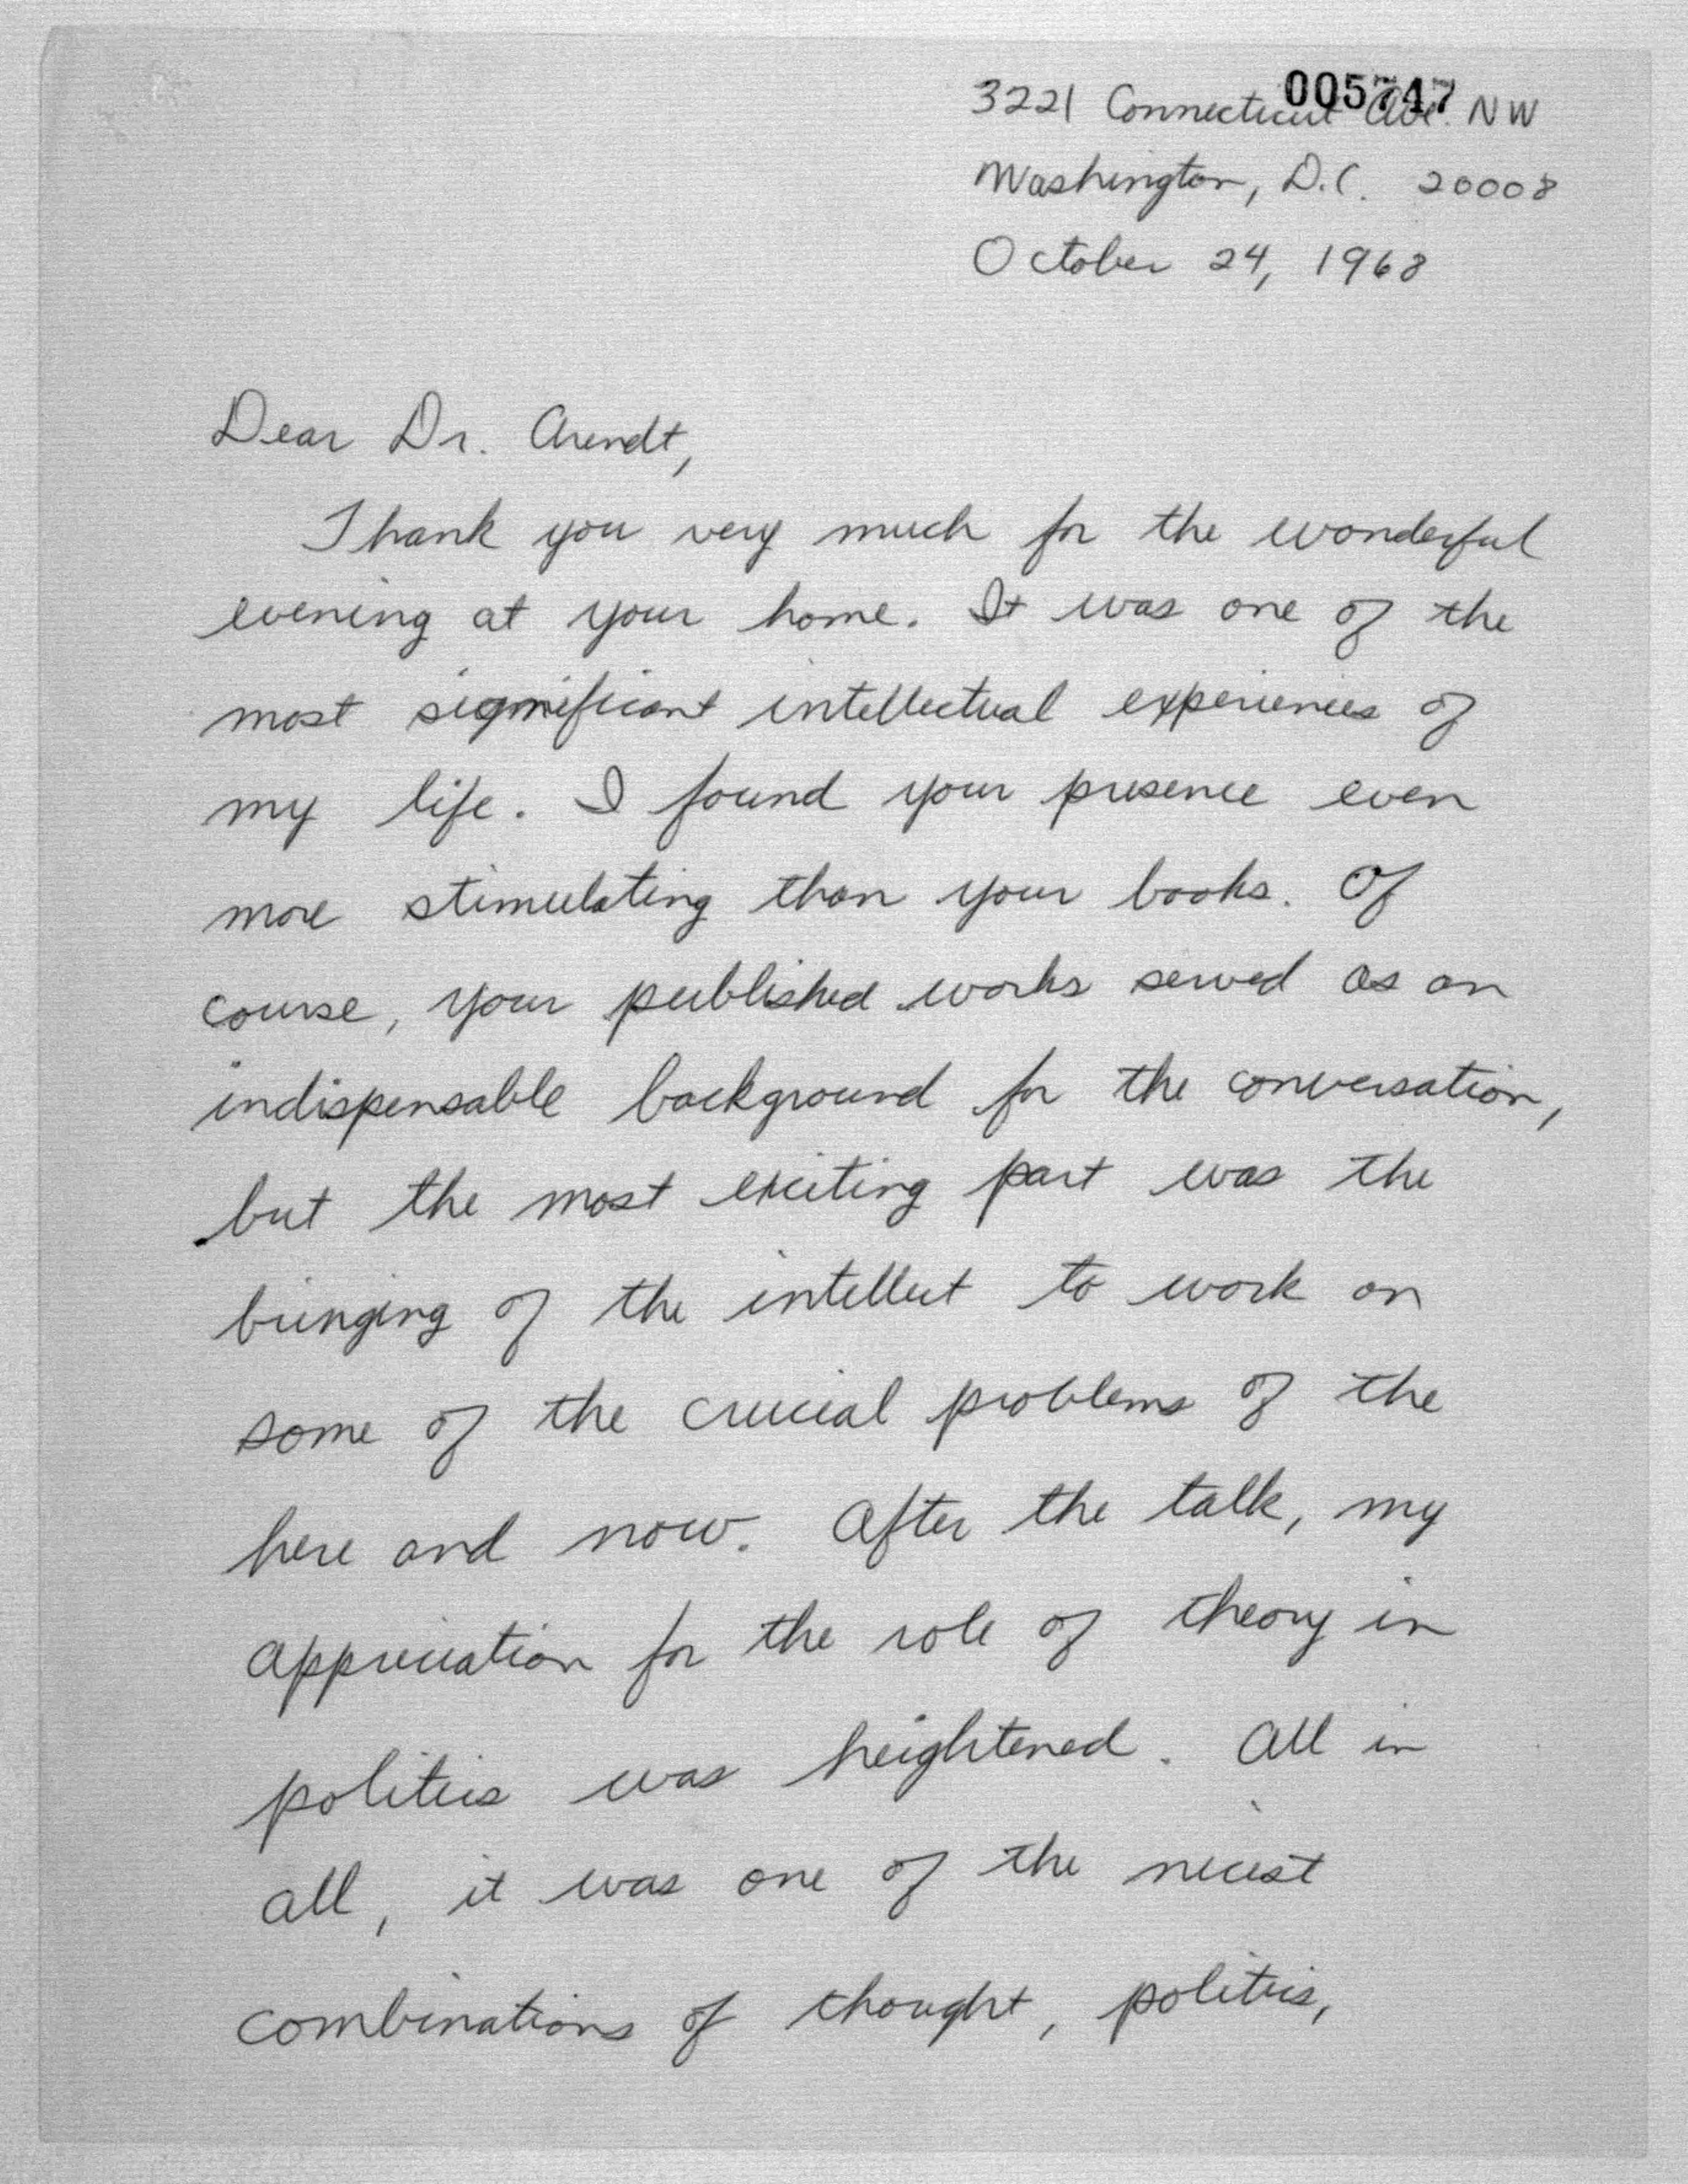 005747
3221 Connecticut Ave. NW
Washington, D.C. 20008
October 24, 1968
Dear Dr. Arendt,
Thank you very much for the wonderful
evening at your home. It was one of the
most significant intellectual experiences of
my life. I found your presence even
more stimulating than your books. Of
course, your published works served as an
indispensable background for the conversation,
but the most exciting part was the
bringing of the intellect to work on
some of the crucial problems of the
here and now. After the talk, my
appreciation for the role of theory in
politics was heightened. All in
all, it was one of the nicest
combinations of thought, politics,